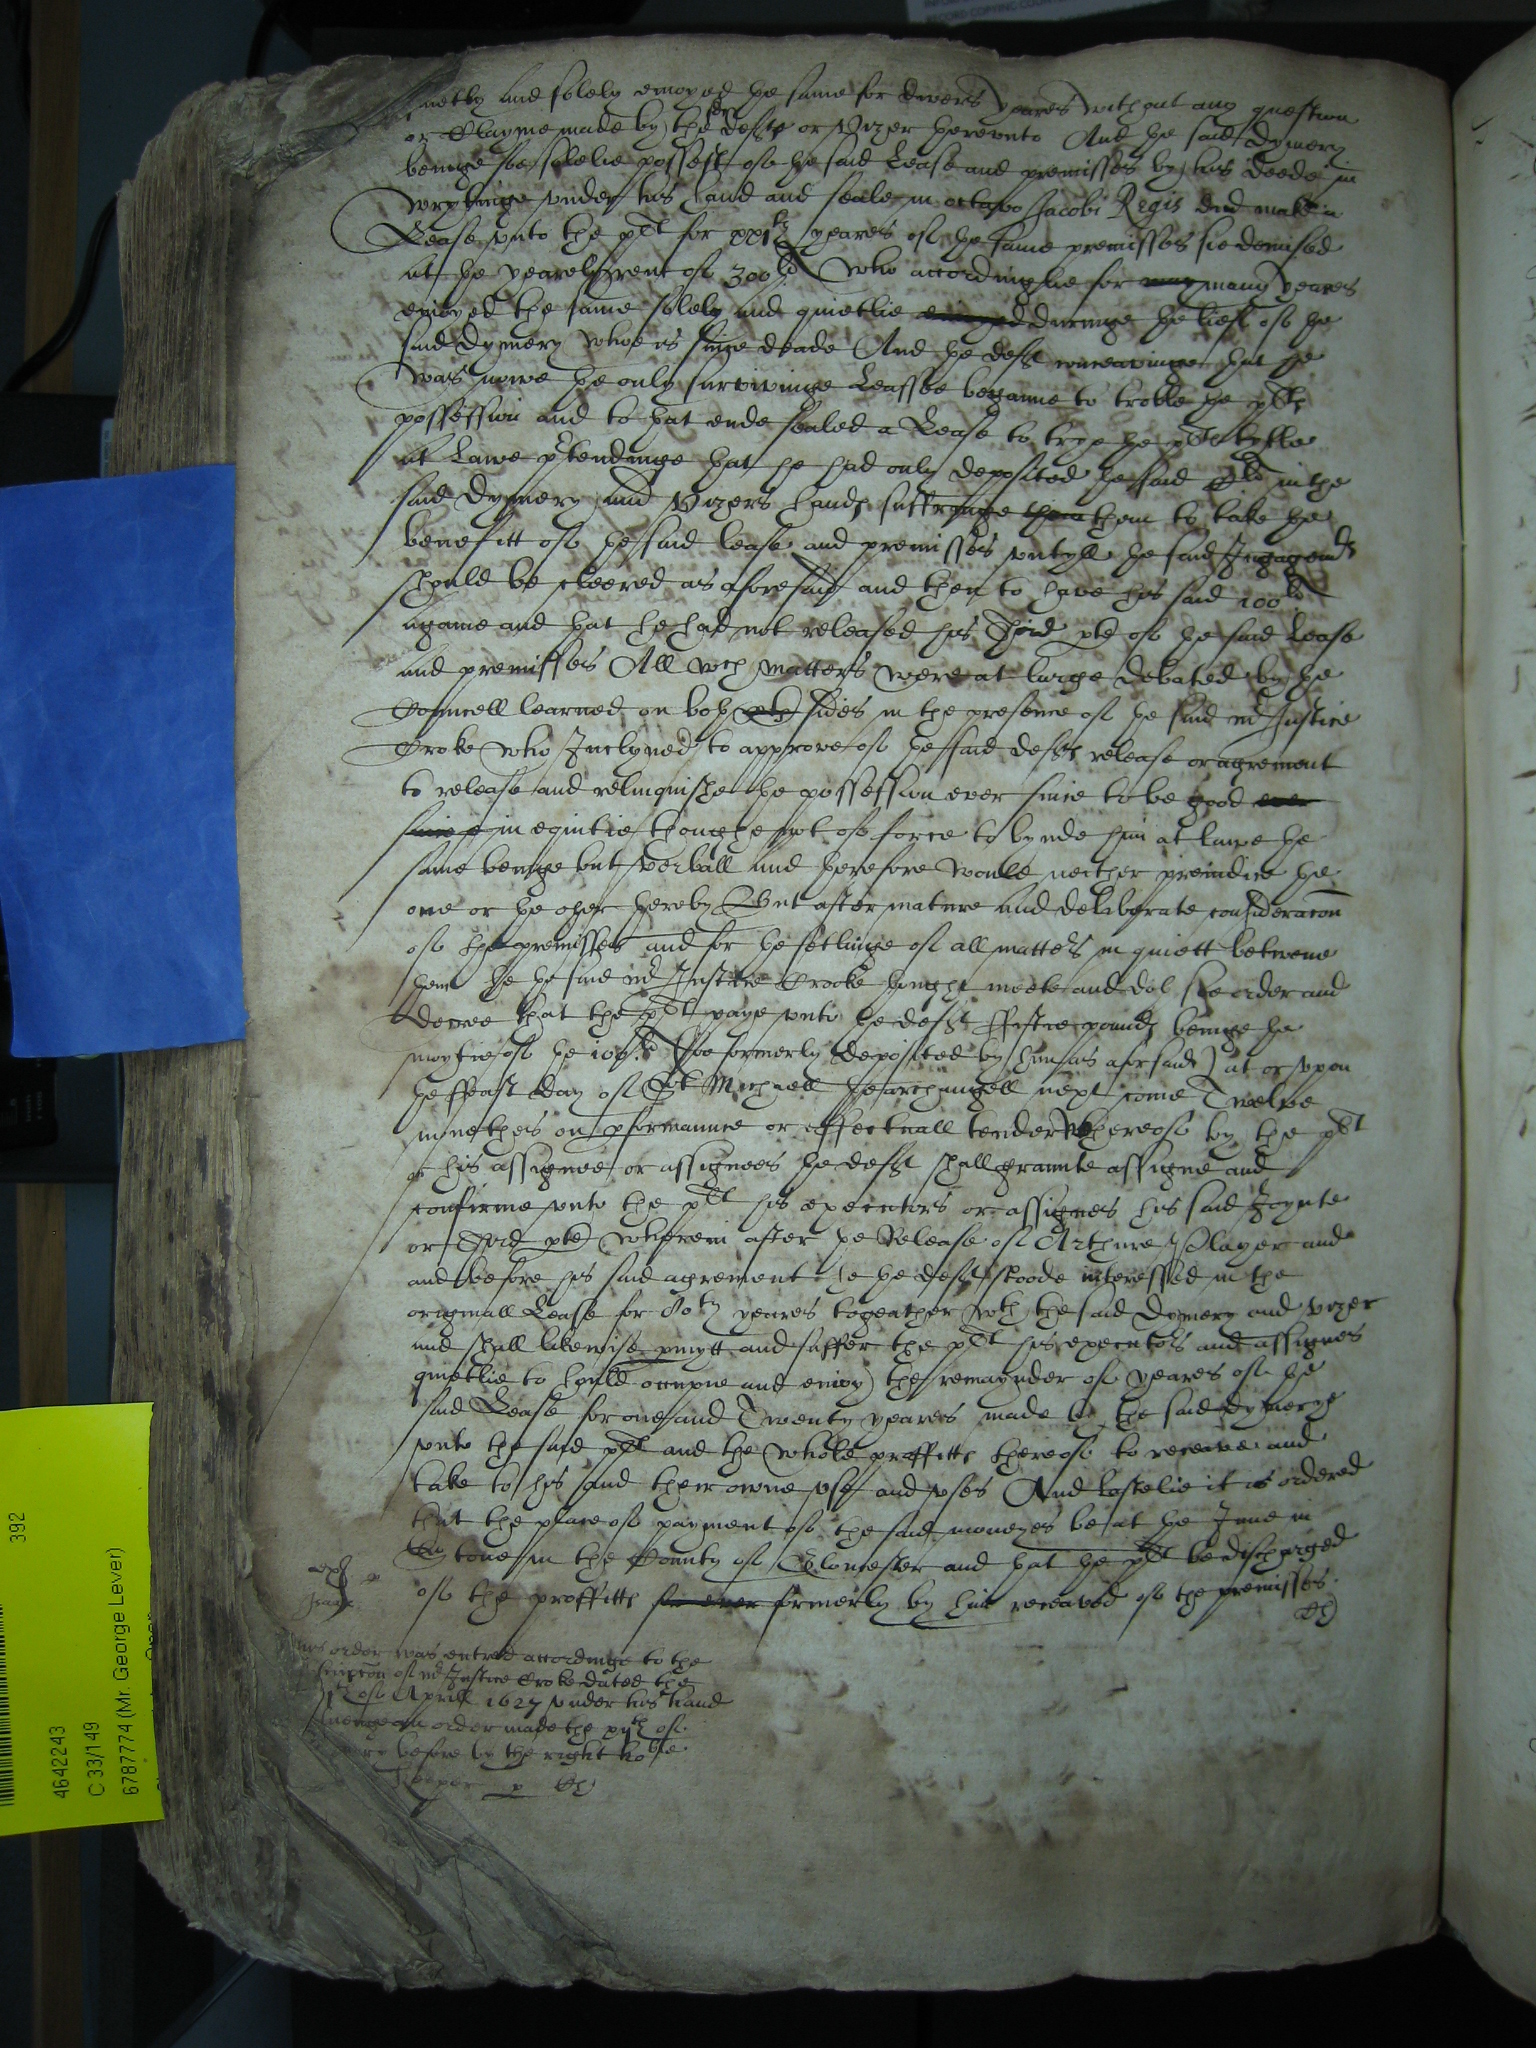 and solely enioyed the same for divers yeares without any question
or Clayme made by the deft or Vizer therevnto And the said Dymery
beinge soe solelie possest of the said Lease and premisses by his deede in
wrytinge vnder his hand and seale in octavo Jacobi Regis did make a
Lease vnto the plt for xxj yeares of the same premisses soe demised
at the yearely rent of 300 li who accordinglie for many yeares
enioyed the same solely and quietlie duringe the lief of the
said Dymery whoe is since deade And the deft conceavinge that he
was nowe the only survivinge Leassee beganne to troble the plts
possession and to that ende sealed a Lease to trye the plts tytle
at Lawe pretendinge that he had only deposited the said in the
said Dymery and Vizers hands suffringe them to take the
benefitt of the said lease and premisses vntyll the said Ingagemts
should be cleered as aforesaid and then to have his said 100 li
againe and that he had not released his Third pte of the said Lease
and premisses All wch matters were at large debated by the
Councell learned on both sides in the presence of the said Mr Justice
Croke who Inclyned to approve of the said defts release or agreement
to release and relinquishe the possession ever since to be good ever
since in equitie thoughe not of force to bynde him at lawe the
same beinge but verball and therefore would neither preiudice the
one or the other thereby But after mature and deliberate consideracon
of the premisses and for the setlinge of all matters in quiett betweene
them he the said Mr Justice Crooke thought meete and doth soe order and
decree that the plt paye vnto the deft ffiftie pounds beinge the
moytie of the 100 li (soe formerly deposited by him as aforsaid) at or vpon
the ffeast day of St Michaell tharchangell next come Twelve
monethes on pformaunce or effectuall tender whereof by the plt
or his assignee or assignees the deft shall graunte assigne and
confirme vnto the plt his executors or assignes his said Joynte
or Third pte wherein after the Release of Arthure Player and
and before his said agreement he the deft stoode interessed in the
originall Lease for 80ty yeares togeather wth the said Dymery and Vizer
and shall likewise pmytt and suffer the plt his executors and assignes
quietlie to hould occupie and enioy the remaynder of yeares of the
said Lease for one and Twenty yeares made by the said Dymery
vnto the said plt and the whole proffitts thereof to receave and
take to his and their owne vse and vses And lastelie it is ordered
that the place of payment of the said moneyes be at the Inne in
in the County of Gloucester and that the plt be discharged
of the proffitts for ever formerly by him receaved of the premisses.
order was entred accordinge to the
of Mr Justice Croke dated the
of Aprill 1627 vnder his hand
an order made the of
before by the right hoble
4642243
C 33/149
6787774 (Mr. George Lever)
392